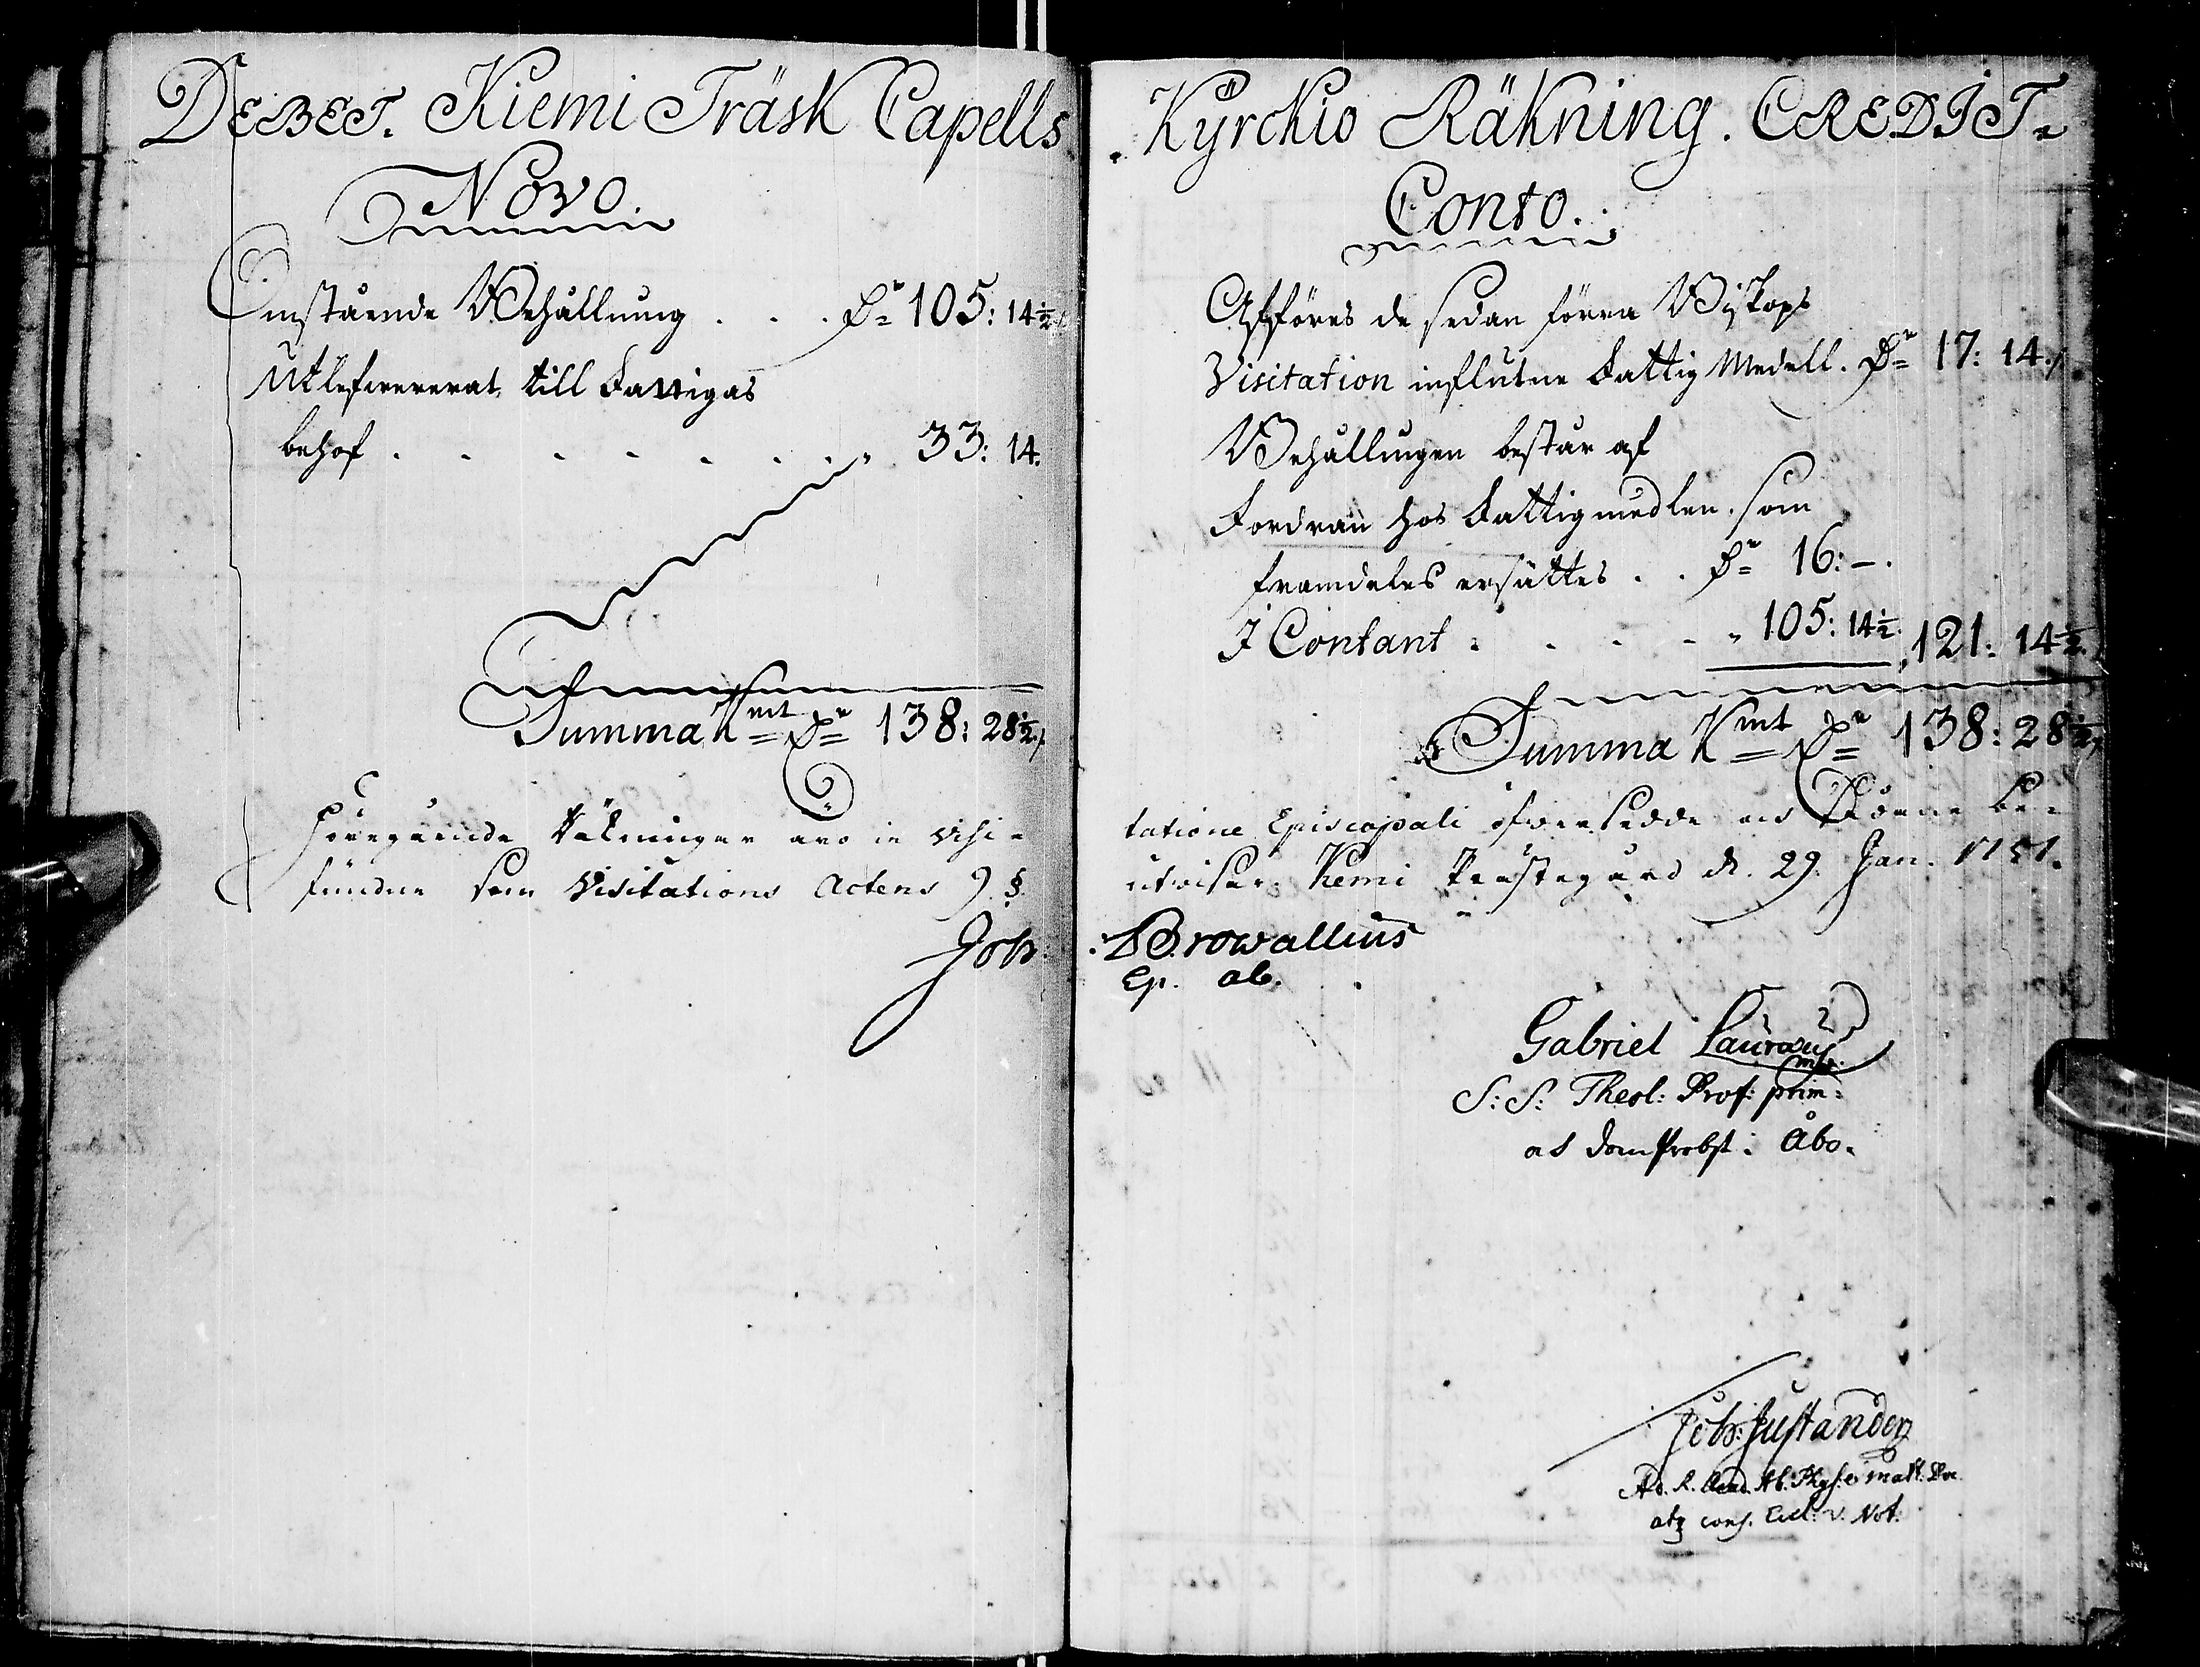 DEBET. Kiemi Träsk Capells
Novo.
Enstående Behållning . . . Dr 105: 14½.
Utlefwererat till Fattigas
behof . . . . . . . " 33: 14.
Summa Kmt Dr 138: 28½.
Föregående Räkningar äro in Visi-
fundne som Visitations Actens 9. §.
Joh.
Kyrckio Räkning. CREDIT.
Conto.
Afföres de sedan förra Biskops
Visitation influtne Fattig Medell. Dr 17: 14.
Behållningen består af
Fordran hos Fattigmedlen, som
framdeles ersättes . . Dr 16: –.
I Contant . . . . " 105: 14½. 121: 14½.
Summa Kmt Dr 138: 28½.
tatione Episcopali öfwersedde och be-
utwisar. Kemi Prästegård d. 29. Jan. 1751.
Browallius
Ep. ab.
Gabriel Lauræus
mp.
S: S: Theol: Prof: prim:
och DomProbst i Åbo.
Joh: Justander
Ad. R. Acad. Ab. Phys. & Math.
atq cons. Eccl. v. Not.